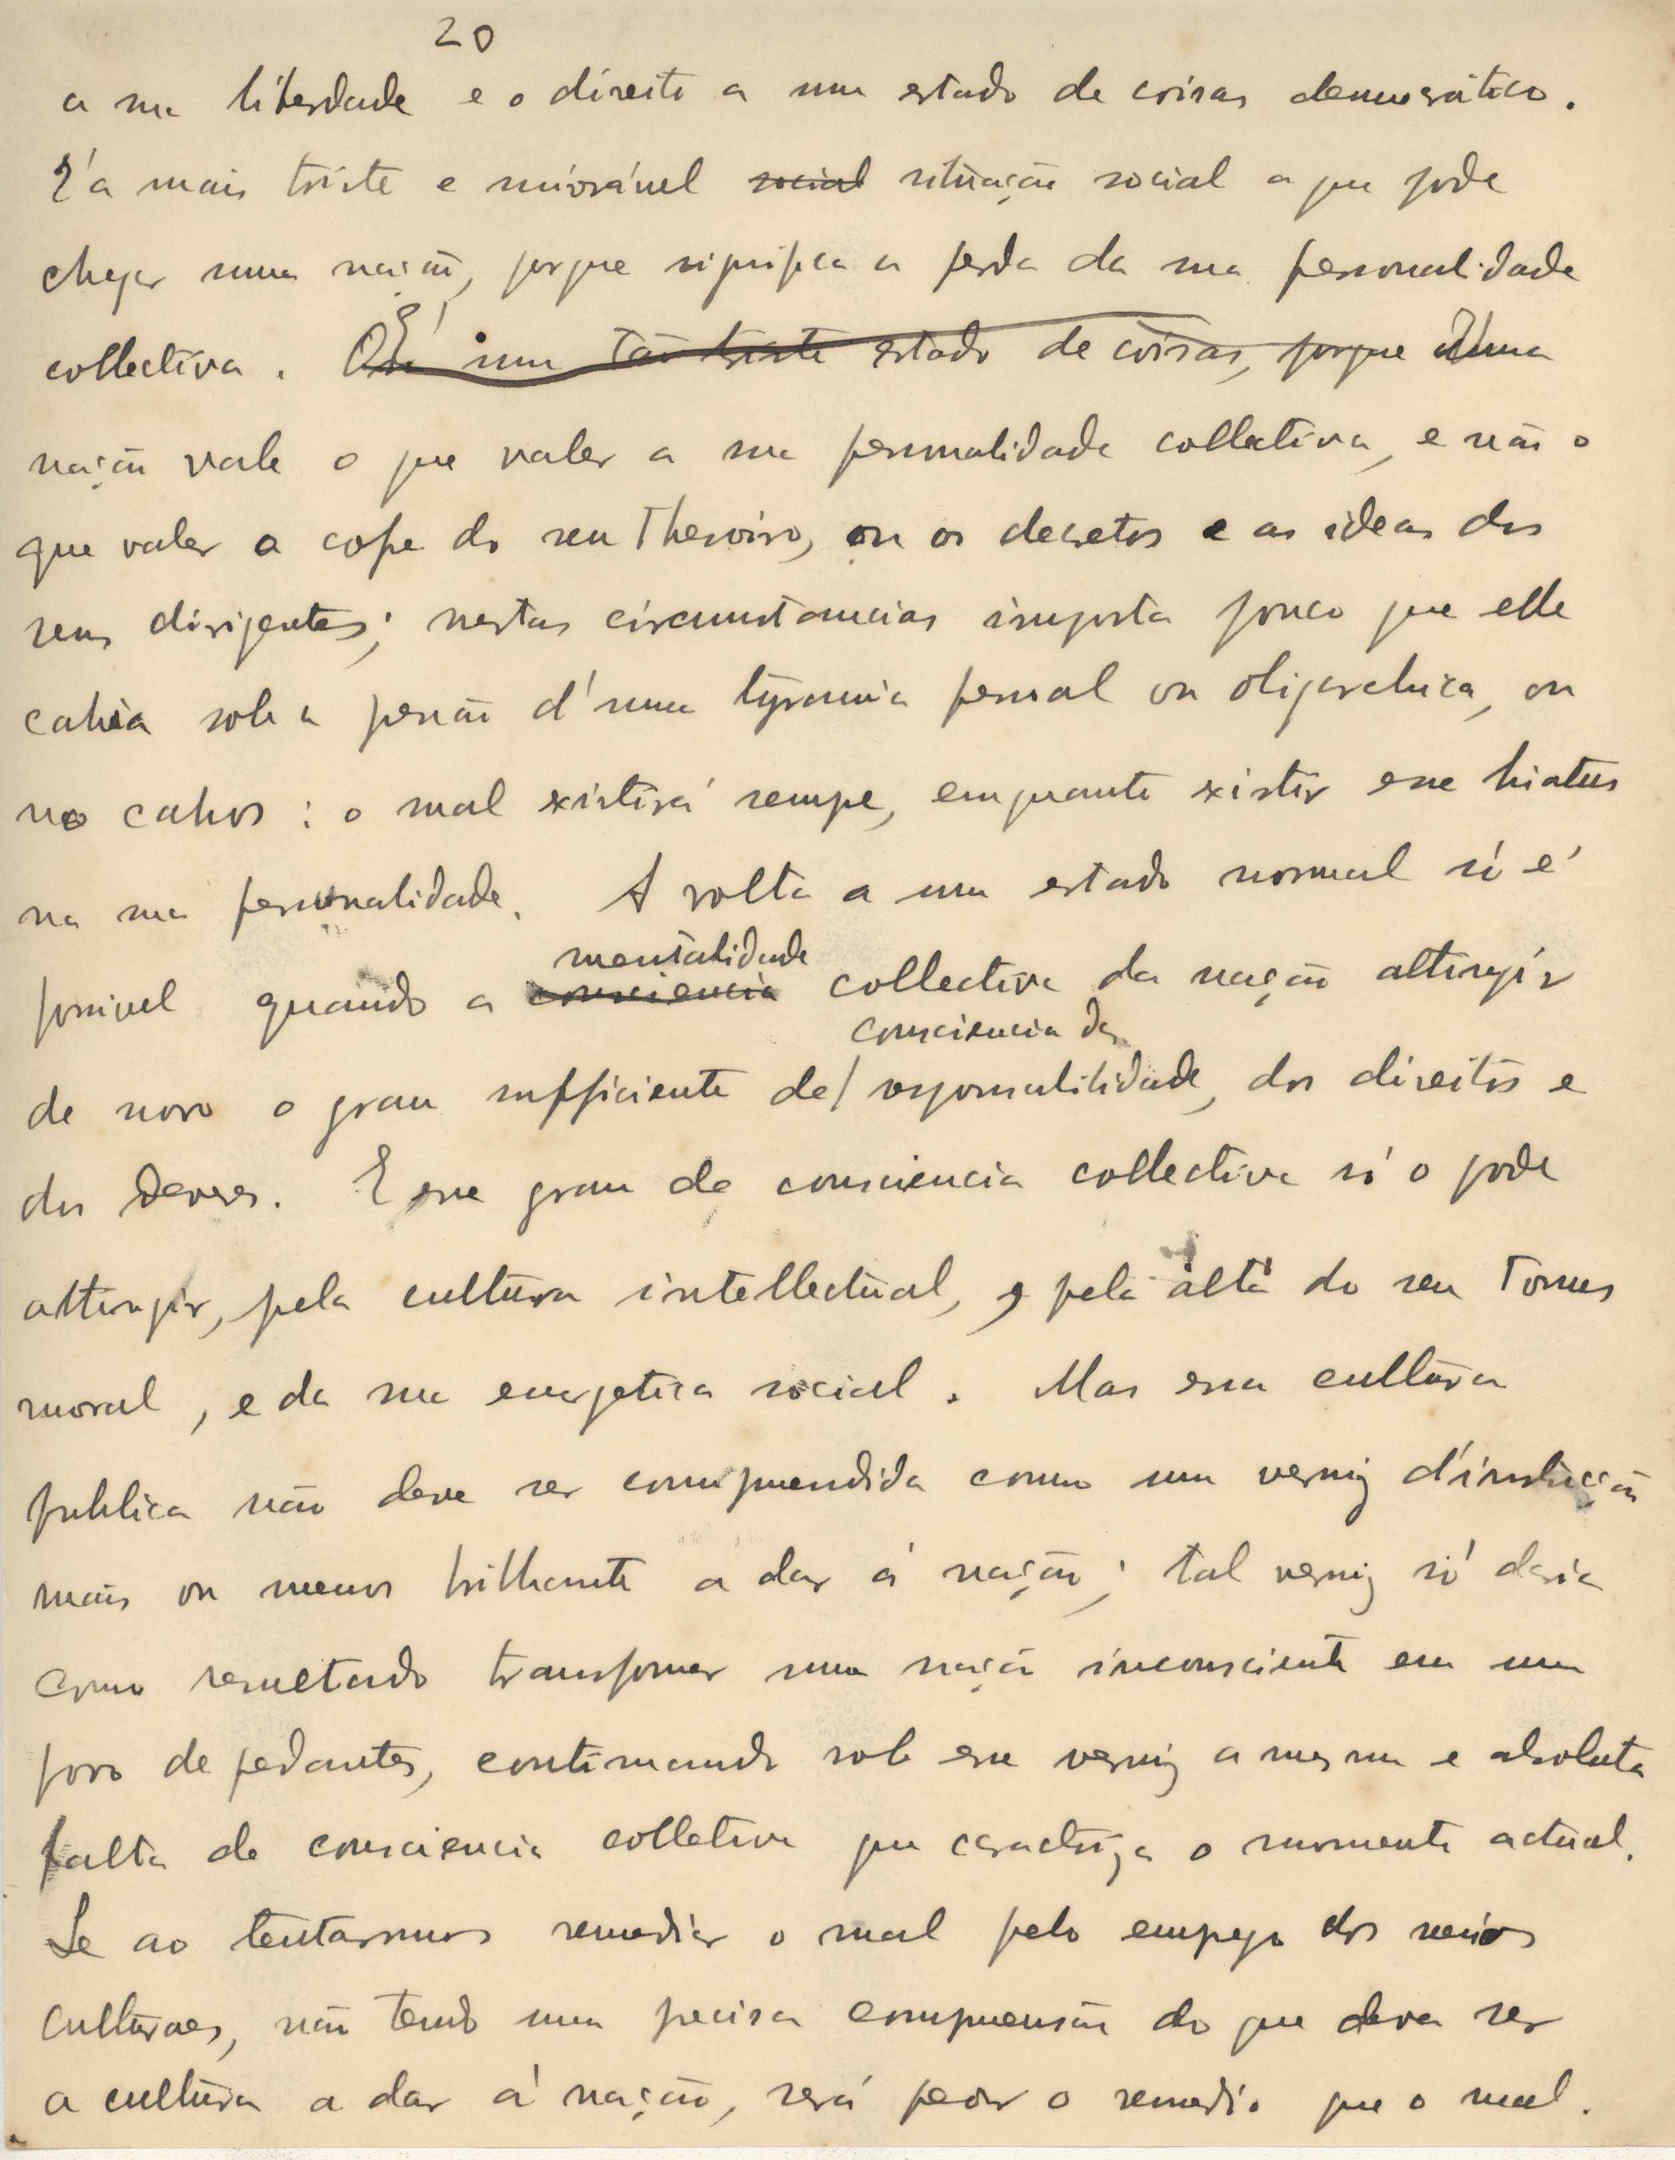 20
a sua liberdade e o direito a um estado de coisas democrático.
É a mais triste e miserável social situação social a que pode
chegar uma nação, porque significa a perda da sua personalidade
collectiva. É um tão triste estado de coisas, porque Uma
nação vale o que valer a sua personalidade collectiva, e não o
que valer o cofre do seu Thesoiro, ou os decretos e as ideas dos
seus dirigentes; nestas circumstancias importa pouco que elle
cahia sob a pressão d'uma tyrannia pessoal ou oligarchica, ou
no cahos: o mal existirá sempre, emquanto existir esse hiatus
na sua personalidade. A volta a um estado normal só é
mentalidade
possivel quando a consciencia collectiva da nação attingir
consciencia da
de novo o grau sufficiente de/ responsabilidade, dos direitos e
dos deveres. E esse grau de consciencia collectiva só o pode
attingir, pela cultura intellectual, e pela alta do seu Tonus
moral, e da sua energetica social. Mas essa cultura
publica não deve ser comprehendida como um verniz d'instrucção
mais ou menos brilhante a dar á nação; tal verniz só daria
como resultado transformar uma nação inconsciente em um
povo de pedantes, continuando sob esse verniz a mesma e absoluta
falta de consciencia colletiva que caracteriza o momento actual.
Se ao tentarmos remediar o mal pelo emprego dos meios
culturaes, não tendo uma precisa comprensão do que deva ser
a cultura a dar á nação, será peor o remedio que o mal.